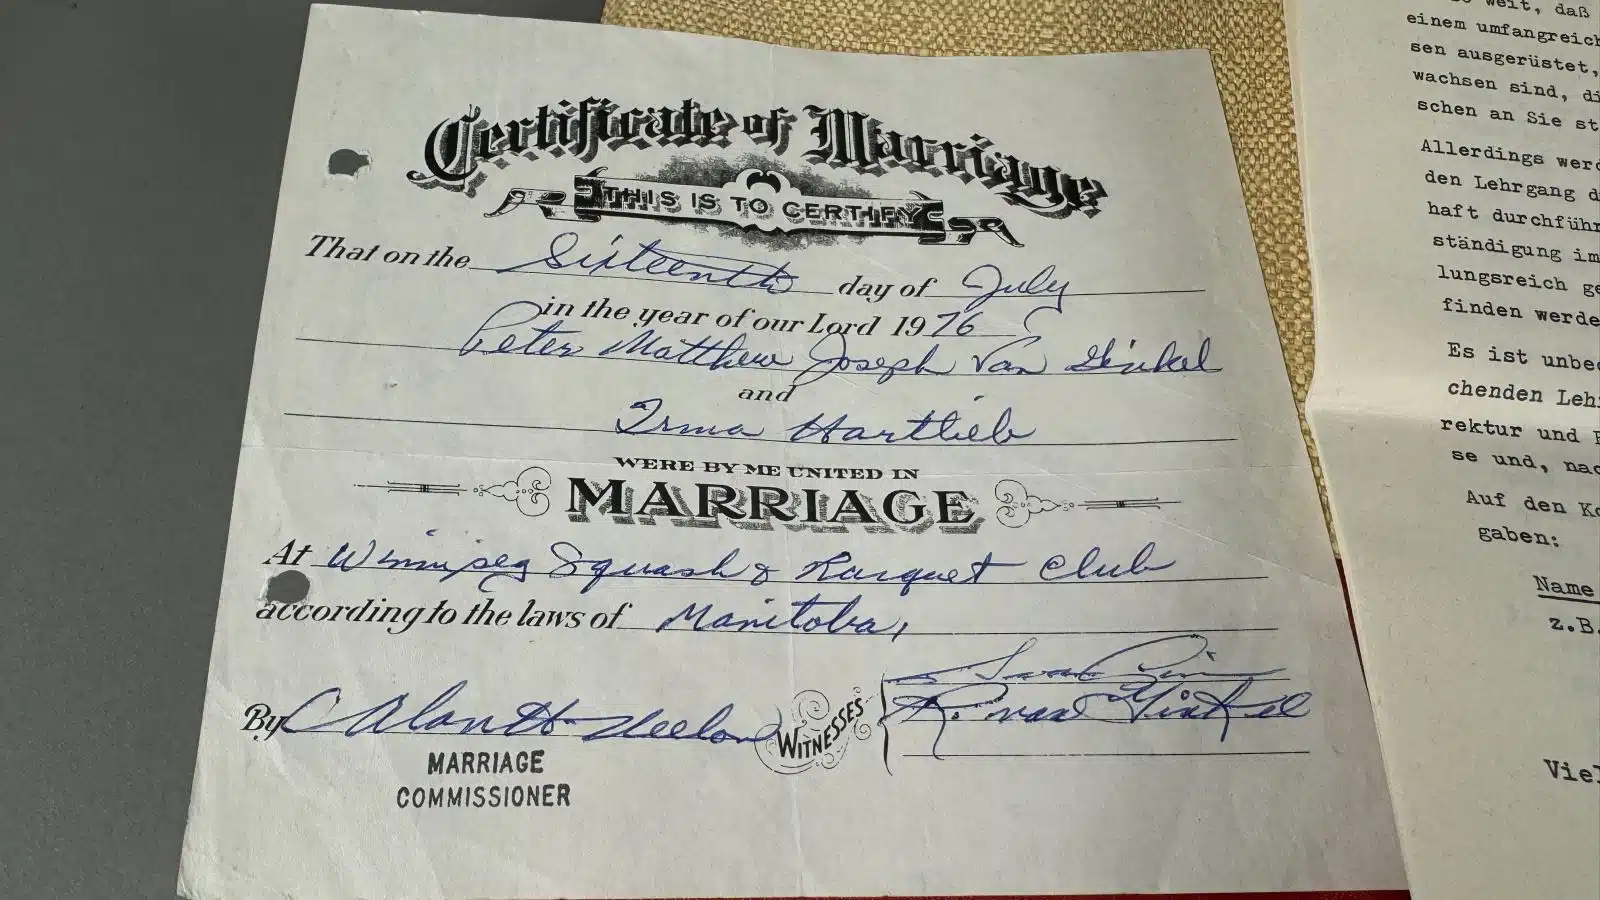 Certificate of Marriage
THIS IS TO CERTIFY
That on the Sixteenth day of July
in the year of our Lord 1976
Peter Matthew Joseph Van Ginkel
and
Irma Hartlieb
WERE BY ME UNITED IN
MARRIAGE
At Winnipeg Squash & Racquet Club
according to the laws of Manitoba,
By
MARRIAGE
COMMISSIONER
WITNESSES
R. van Ginkel
weit, daß
einem umfangreich
sen ausgerüstet,
wachsen sind, di
schen an Sie st
Allerdings werd
den Lehrgang d
haft durchführ
ständigung im
lungsreich ge
finden werde
Es ist unbe
chenden Leh
rektur und
se und, nac
Auf den Ko
gaben:
Name
z.B.
Viel